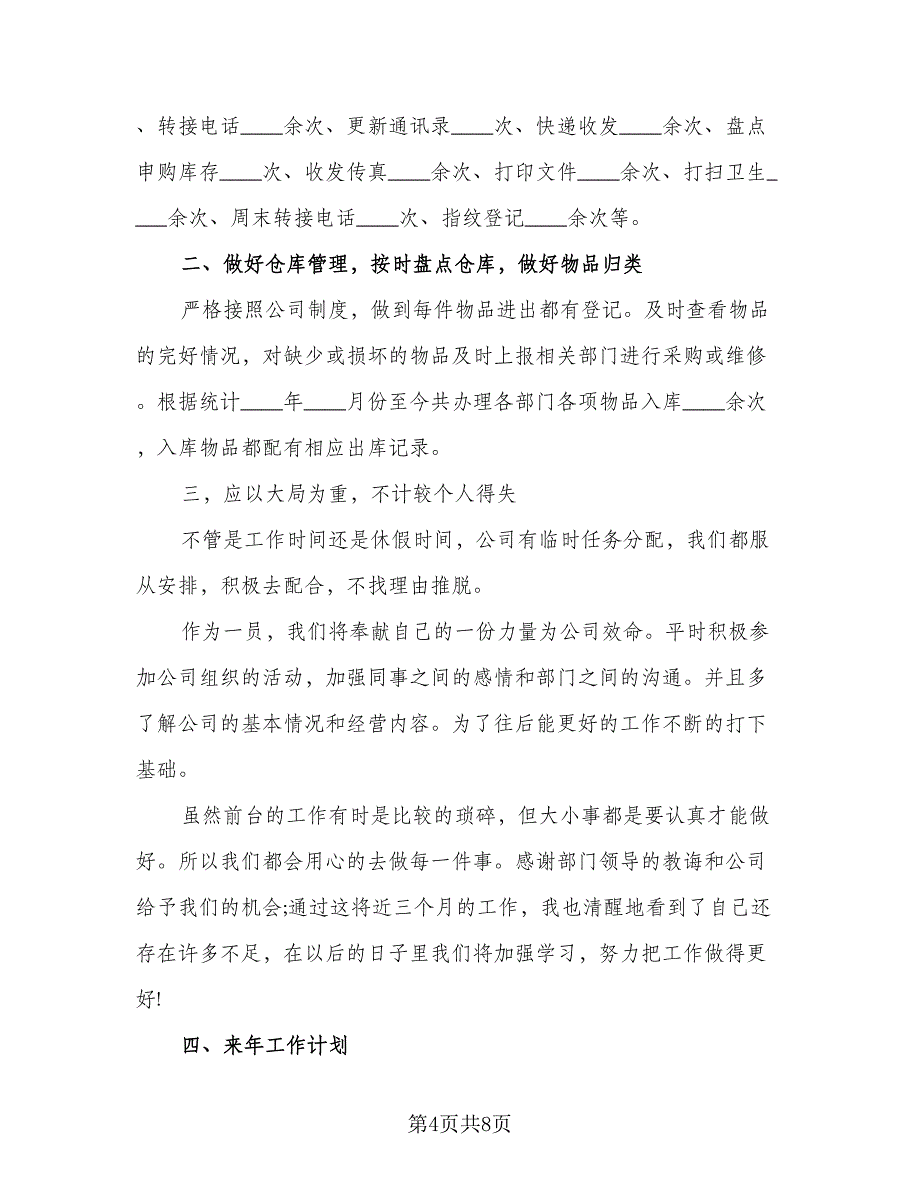 、转接电话____余次、更新通讯录____次、快递收发____余次、盘点
申购库存____次、收发传真____余次、打印文件____余次、打扫卫生_
___余次、周末转接电话____次、指纹登记____余次等。
二、做好仓库管理，按时盘点仓库，做好物品归类
严格按照公司制度，做到每件物品进出都有登记。及时查看物品
的完好情况，对缺少或损坏的物品及时上报相关部门进行采购或维修
。根据统计____年____月份至今共办理各部门各项物品入库____余次
，入库物品都配有相应出库记录。
三，应以大局为重，不计较个人得失
不管是工作时间还是休假时间，公司有临时任务分配，我们都服
从安排，积极去配合，不找理由推脱。
作为一员，我们将奉献自己的一份力量为公司效命。平时积极参
加公司组织的活动，加强同事之间的感情和部门之间的沟通。并且多
了解公司的基本情况和经营内容。为了往后能更好的工作不断的打下
基础。
虽然前台的工作有时是比较的琐碎，但大小事都是要认真才能做
好。所以我们都会用心的去做每一件事。感谢部门领导的教诲和公司
给予我们的机会;通过这将近三个月的工作，我也清醒地看到了自己还
存在许多不足，在以后的日子里我们将加强学习，努力把工作做得更
好!
四、来年工作计划
第4页共8页